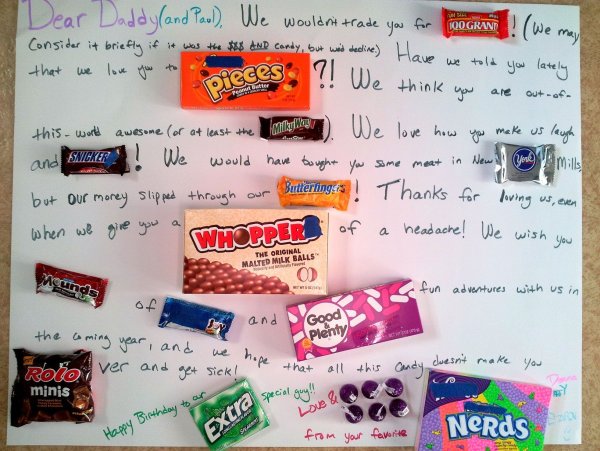 Dear Daddy (and Paul), We wouldn't trade you for 100 GRAND ! (We may
consider it briefly if it was the $$$ AND candy, but we'd decline) Have we told you lately
that we love you to Pieces Peanut Butter ?! We think you are out-of-
this-world awesome (or at least the Milky Way). We love how you make us laugh
and SNICKER ! We would have bought you some meat in New York Mills,
but our money slipped through our Butterfingers ! Thanks for loving us, even
when we give you a WHOPPER of a headache! We wish you
THE ORIGINAL
MALTED MILK BALLS
Mounds of and Good & Plenty fun adventures with us in
the coming year, and we hope that all this candy doesn't make you
Rolo minis ver and get sick!
Happy Birthday to our Extra special guy!! Love &
from your favorite NERDS